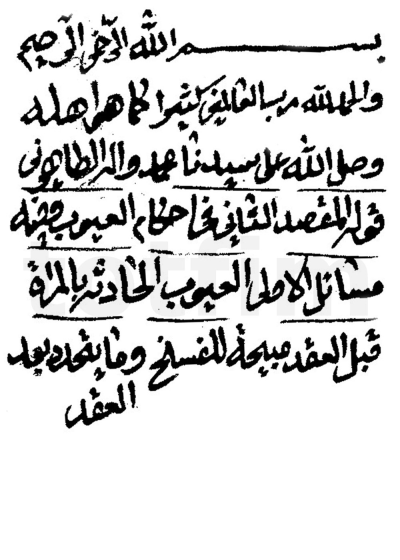 بسم الله الرحمن الرحيم
والحمد لله رب العالمين كثيرا كما هو اهله
وصلى الله على سيدنا محمد واله الطاهرين
قوله المقصد الثاني في احكام العيوب وفيه
مسائل الاولى العيوب الحادثة بالمراة
قبل العقد مبيحة للفسخ وما يتجدد بعد
العقد